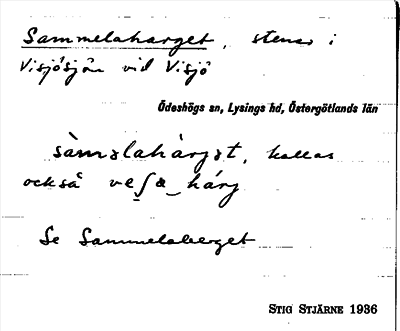 Sammelaharget, stenar i
Visjösjön vid Visjö
Ödeshögs sn, Lysings hd, Östergötlands län
sàməlahárgət, kallas
också
Se Sammelaberget
STIG STJÄRNE 1936